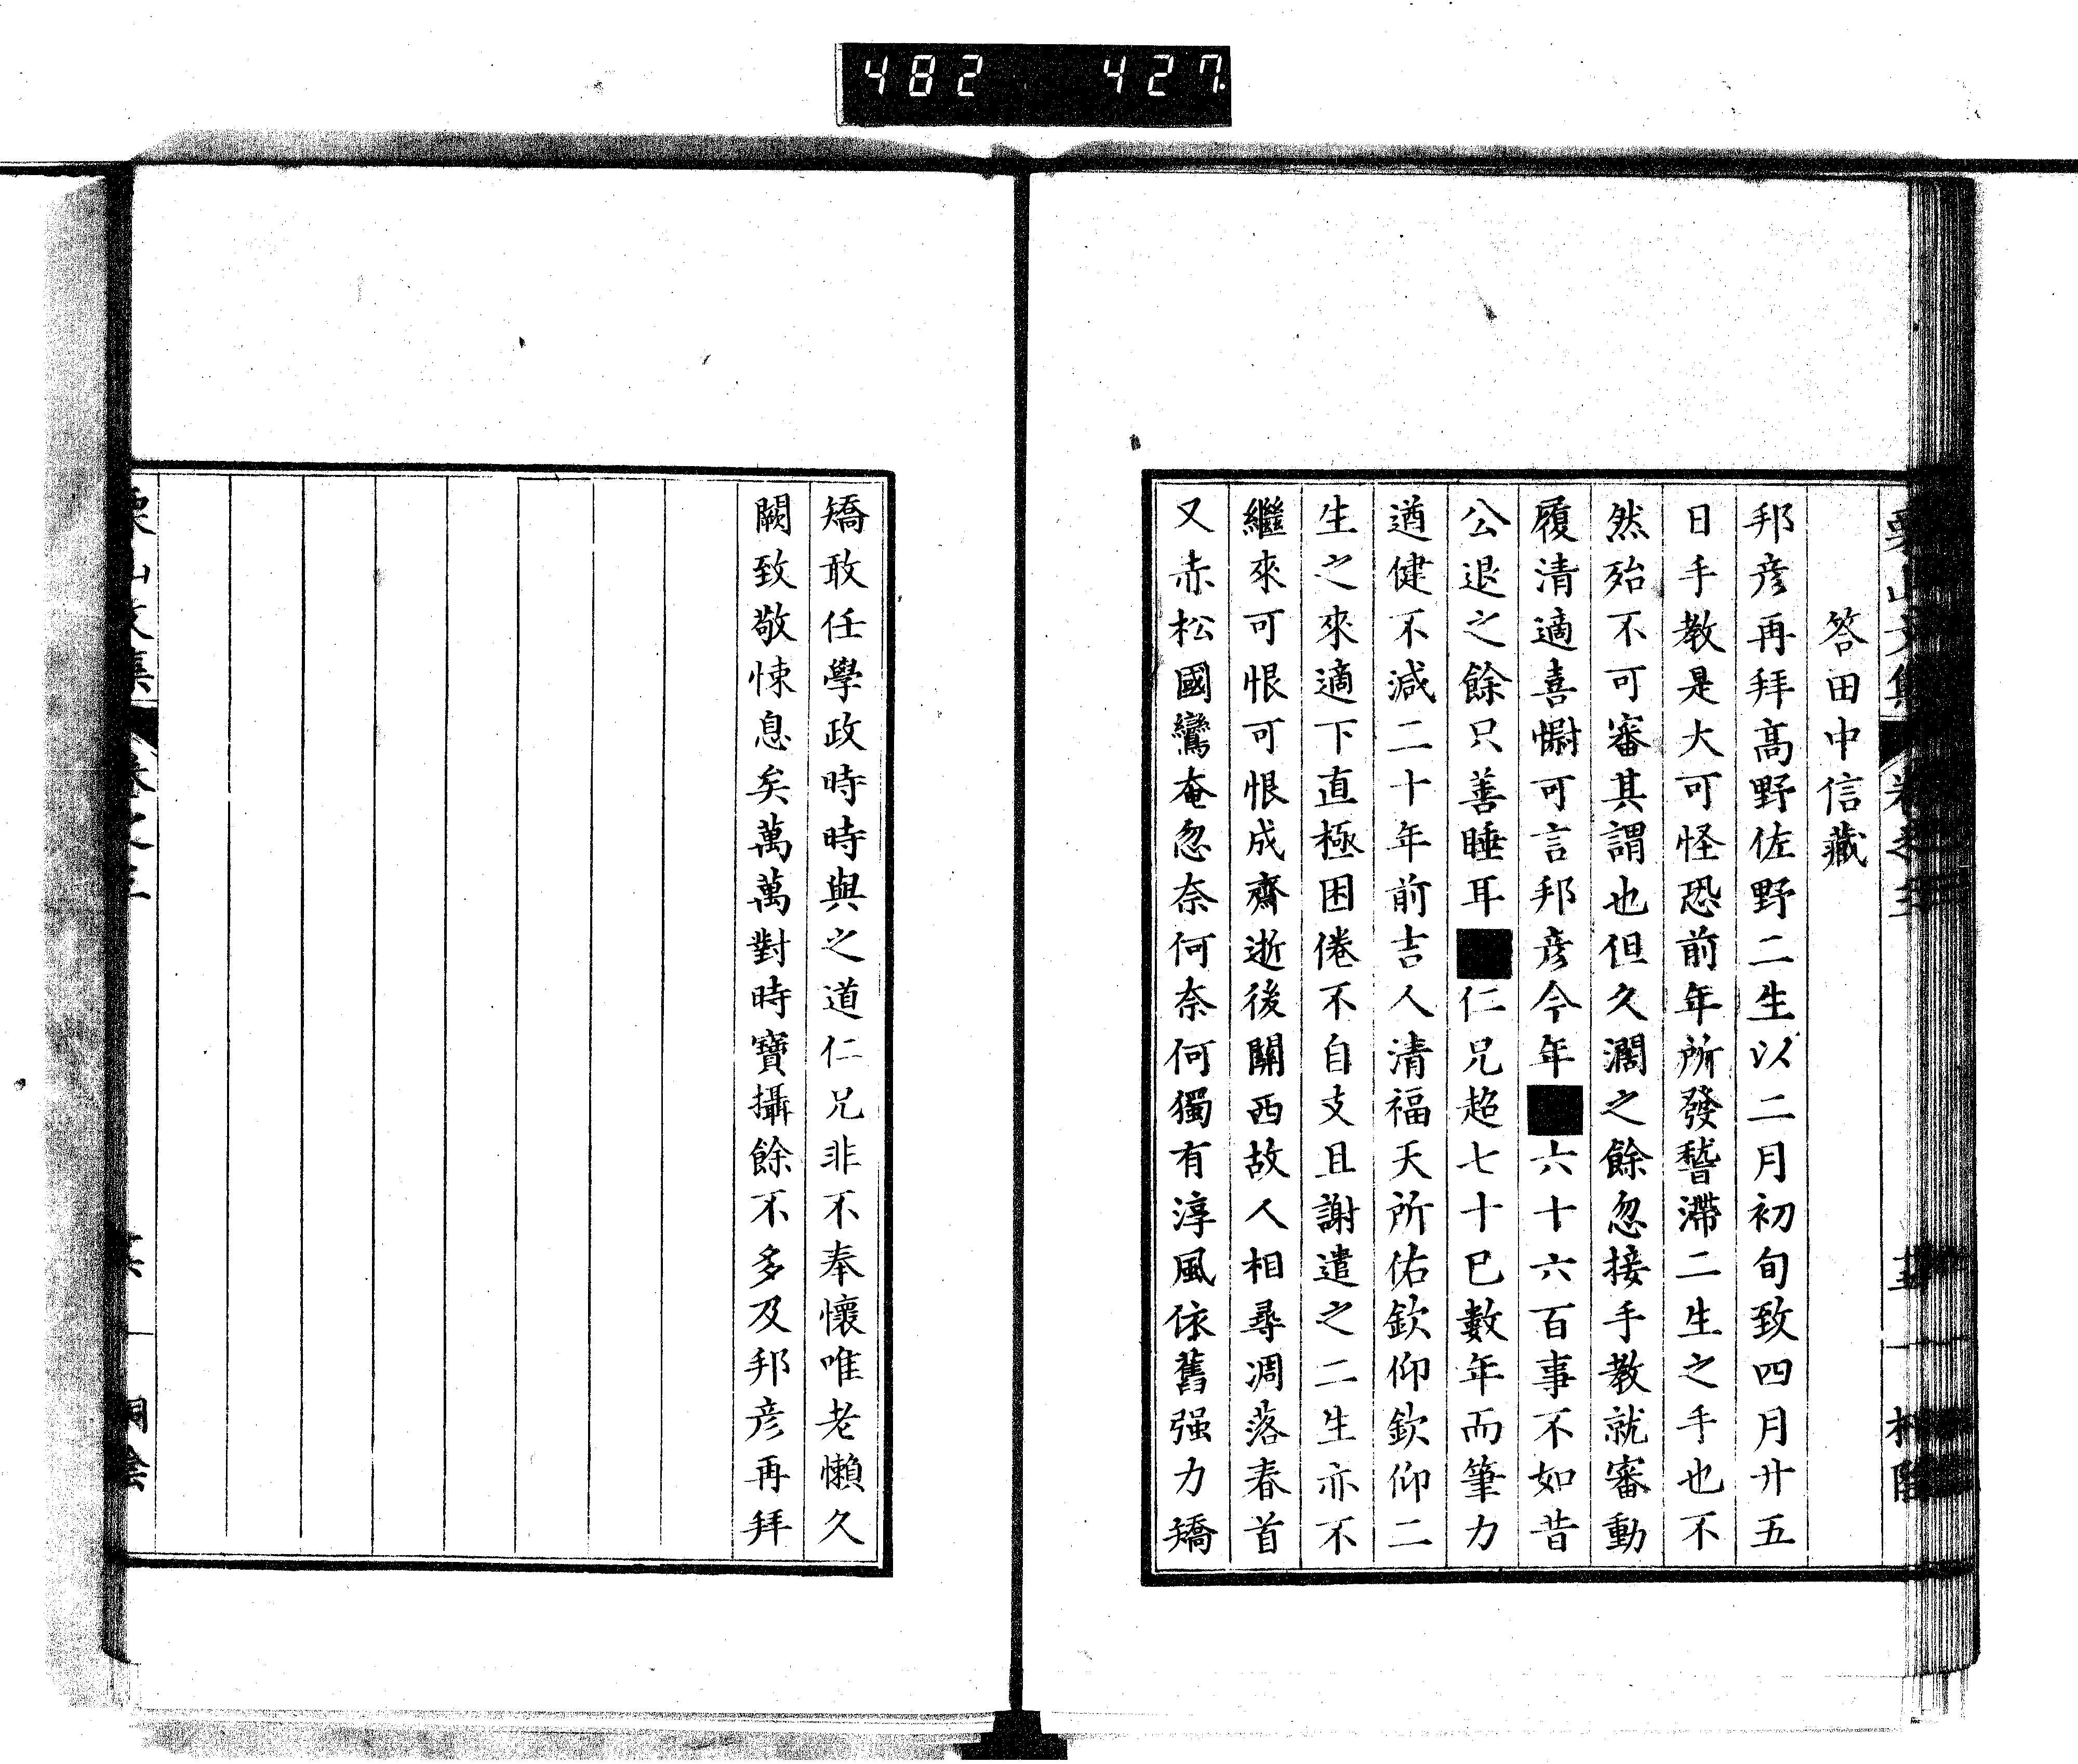 482 427
答田中信藏
邦彦再拜高野佐野二生以二月初旬致四月廿五
日手教是大可怪恐前年所發稽滯二生之手也不
然殆不可審其謂也但久濶之餘忽接手教就審動
履清適喜慰可言邦彦今年■六十六百事不如昔
公退之餘只善睡耳■仁兄超七十已數年而筆力
遒健不減二十年前吉人清福天所佑欽仰欽仰二
生之來適下直極困倦不自支且謝遣之二生亦不
繼來可恨可恨成齋逝後關西故人相尋凋落春首
又赤松國鸞奄忽奈何奈何獨有淳風依舊强力矯
矯敢任學政時時與之道仁兄非不奉懷唯老懶久
闕致敬悚息矣萬萬對時寶攝餘不多及邦彦再拜